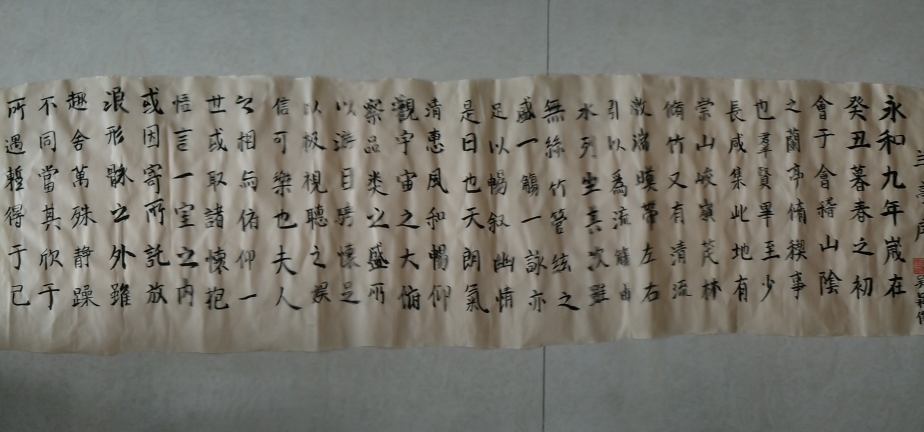 永和九年歲在
癸丑暮春之初
會于會稽山陰
之蘭亭脩禊事
也羣賢畢至少
長咸集此地有
崇山峻嶺茂林
脩竹又有清流
激湍暎帶左右
引以為流觴曲
水列坐其次雖
無絲竹管絃之
盛一觴一詠亦
足以暢叙幽情
是日也天朗氣
清惠風和暢仰
觀宇宙之大俯
察品類之盛所
以游目騁懷足
以極視聽之娛
信可樂也夫人
之相與俯仰一
世或取諸懷抱
悟言一室之内
或因寄所託放
浪形骸之外雖
趣舍萬殊静躁
不同當其欣于
所遇蹔得于己